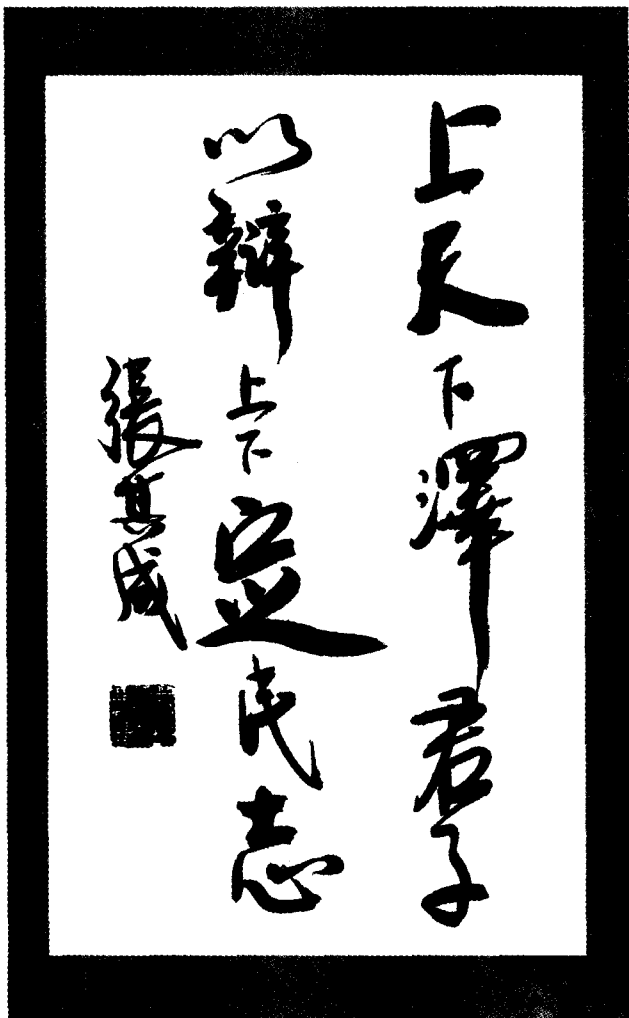 上天下澤君子
以辯上下定民志
張其成